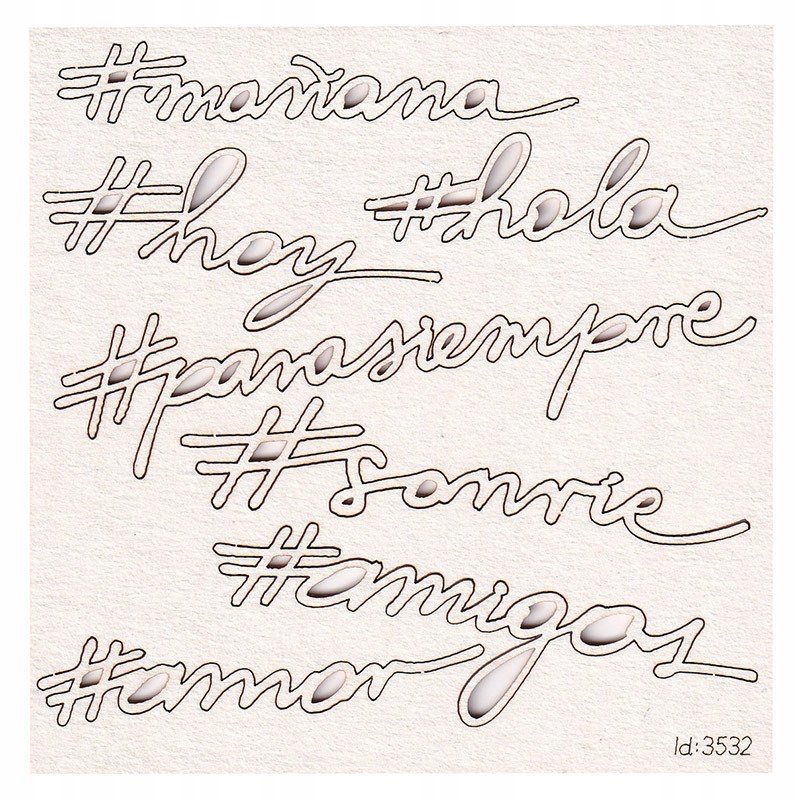 #mañana
#hoy #hola
#parasiempre
#sonrie
#amigos
#amor
Id:3532